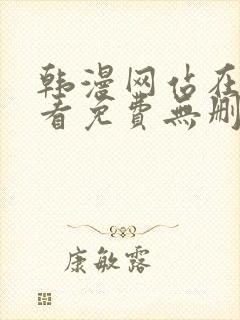 韩漫网站在
看免費無删
康敏露